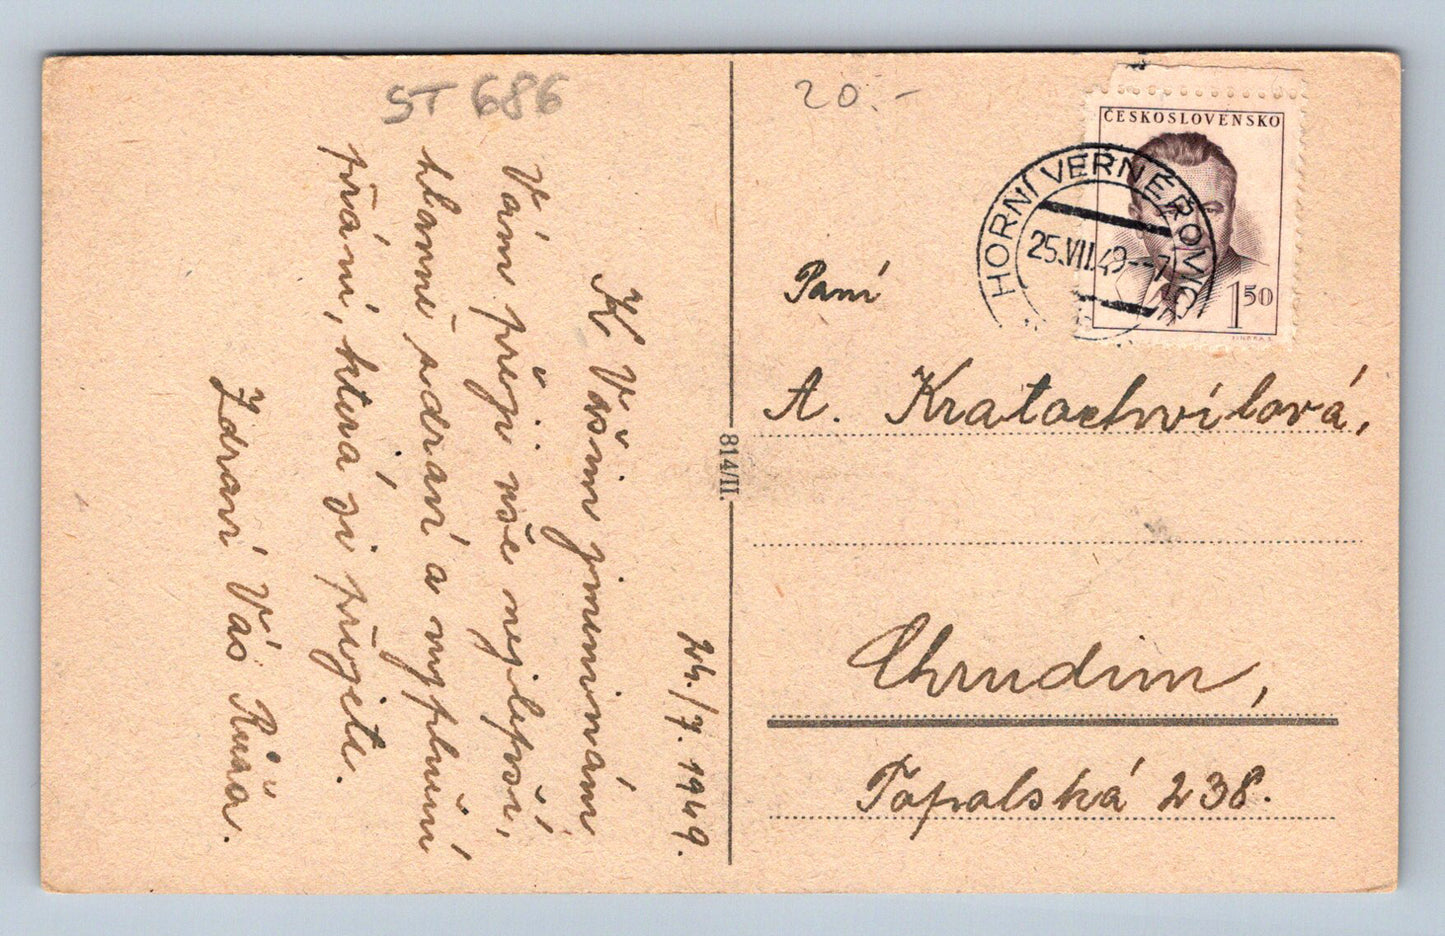 ST 686
24./7. 1949.
K Vašim jmeninám
Vám přeji vše nejlepší,
hlavně zdraví a vyplnění
přání, která si přejete.
Zdraví Vás Růža.
814/II.
20.-
ČESKOSLOVENSKO
1 50
HORNÍ VERNÉŘOVIC
25.VII.49--7
Paní
A. Kratochvílová,
Chrudim,
Topolská 238.